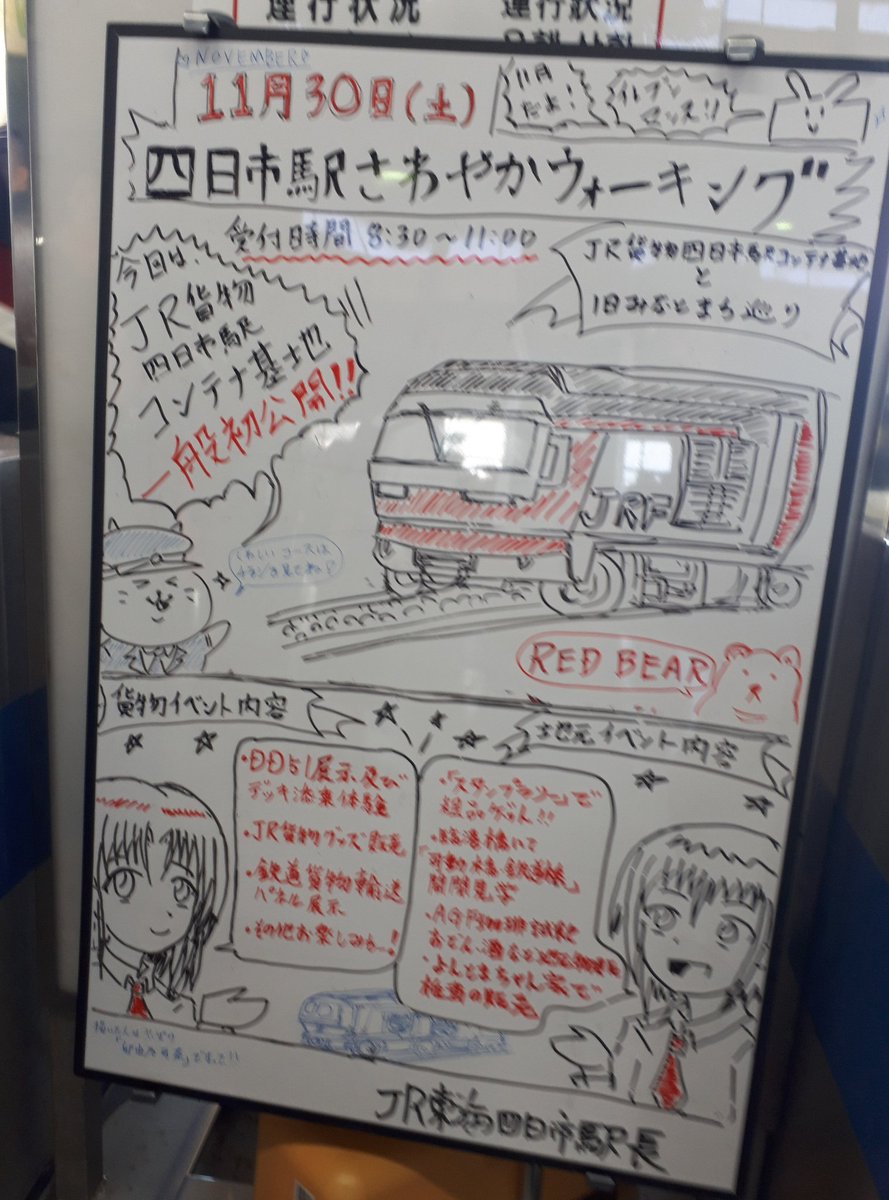 運行状況
運行状況
NOVEMBER
11月30日(土)
11月
だよ!
イレブン
マッス!!
四日市駅さわやかウォーキング
受付時間 8:30〜11:00
今回は、
JR貨物
四日市駅
コンテナ基地
一般初公開!!
JR貨物四日市駅コンテナ基地
と
旧みなとまち巡り
JRF
くわしいコースは
チラシを見てね!
RED BEAR
貨物イベント内容
地元イベント内容
・DD51展示及び
デッキ添乗体験
・JR貨物グッズ販売
・鉄道貨物輸送
パネル展示
・その他お楽しみも…!
・「スタンプラリー」で
粗品ゲット!!
・臨港橋にて
「可動橋・鉄道橋」
開閉見学
・AGF珈琲試飲
おでん、酒など
・よしとまちゃん家で
雑貨の販売
JR東海四日市駅長